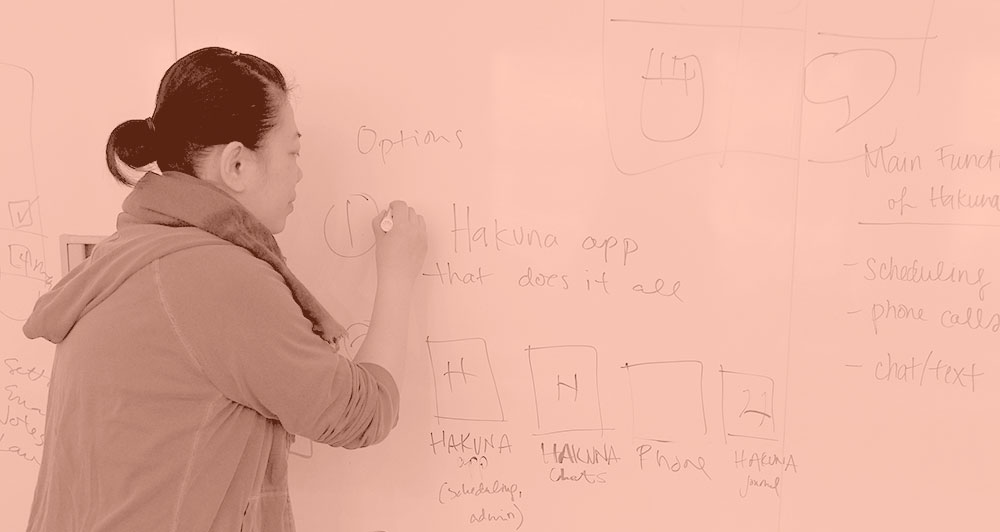 Options
1
Hakuna app
that does it all
H
HAKUNA
app
(scheduling,
admin)
H
HAKUNA
chats
Phone
21
HAKUNA
journal
Main Funct
of Hakuna
- scheduling
- phone calls
- chat/text
Notes